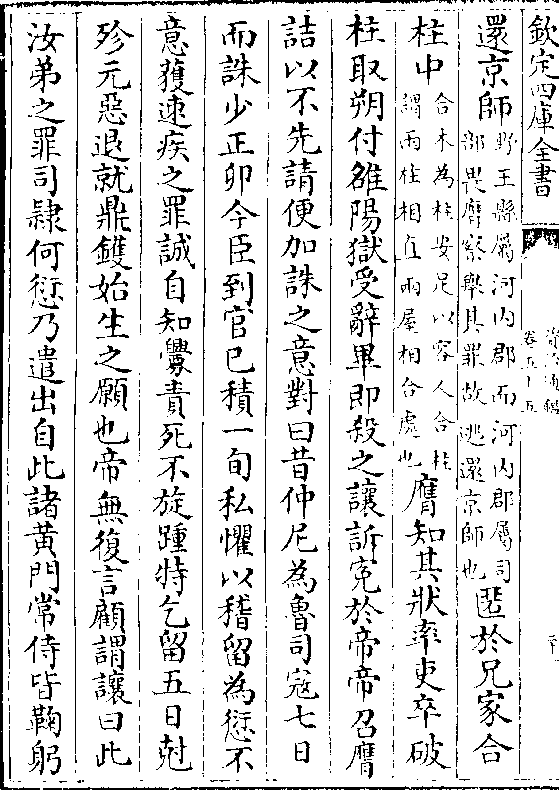 欽定四庫全書
卷五十五
還京師野王縣屬河内郡而河内郡屬司
部畏膺察舉其罪故逃還京師也匿於兄家合
柱中合木為柱安足以容人合柱
謂兩柱相直兩屋相合處也膺知其狀率吏卒破
柱取朔付雒陽獄受辭畢即殺之讓訴寃於帝帝召膺
詰以不先請便加誅之意對曰昔仲尼為魯司宼七日
而誅少正卯今臣到官已積一旬私懼以稽留為愆不
意獲速疾之罪誠自知釁責死不旋踵特乞留五日尅
殄元惡退就鼎鑊始生之願也帝無復言顧謂讓曰此
汝弟之罪司隸何愆乃遣出自此諸黄門常侍皆鞠躬